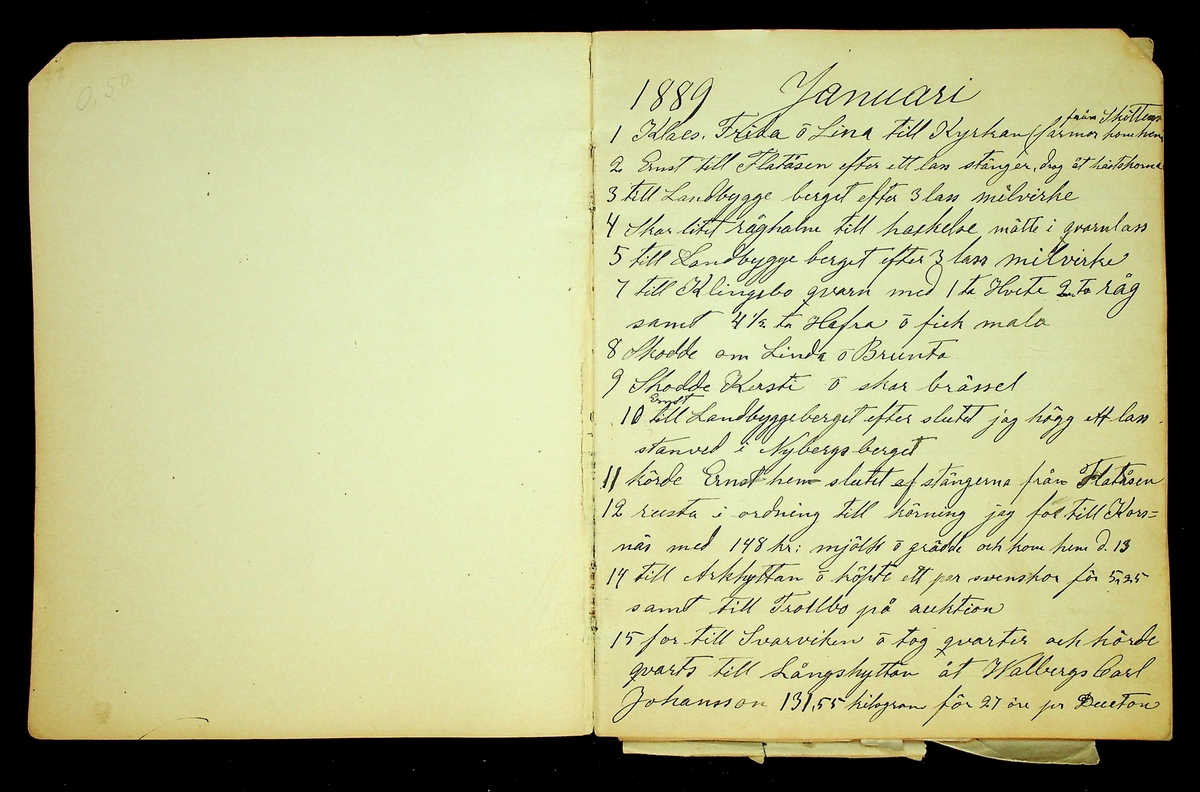 0,50
1889 Januari
från Sköttens
1 Klaes. Frida ō Lina till Kyrkan (farmor kom hem
2 Ernst till Flatåsen efter ett lass stänger, drog åt
3 till Landbygge berget efter 3 lass milvirke
4 Skar litet råghalm till hackelse mätte i qvarnlass
5 till Landbygge berget efter 3 lass milvirke
7 till Klingsbo qvarn med 1 ta Hvete 2 ta råg
samt 4 1/2 ta Hafra ō fick mala
8 Skodde om Linda ō Brunta
9 Skodde Kersti ō skar brässel
Ernst
10 till Landbyggeberget efter slutet jag högg ett lass
stanved i Nybergsberget
11 körde Ernst hem slutet af stängerna från Flatåsen
12 rusta i ordning till körning jag for till Kors=
näs med 148 kr: mjölk ō grädde och kom hem d. 13
14 till Arkhyttan ō köpte ett per svenskor för 5,25
samt till Trollbo på auktion
15 for till Svarviken ō tog qvarter och körde
qvarts till Långshyttan åt Halbergs Carl
Johansson 131,55 kilogram för 27 öre pr